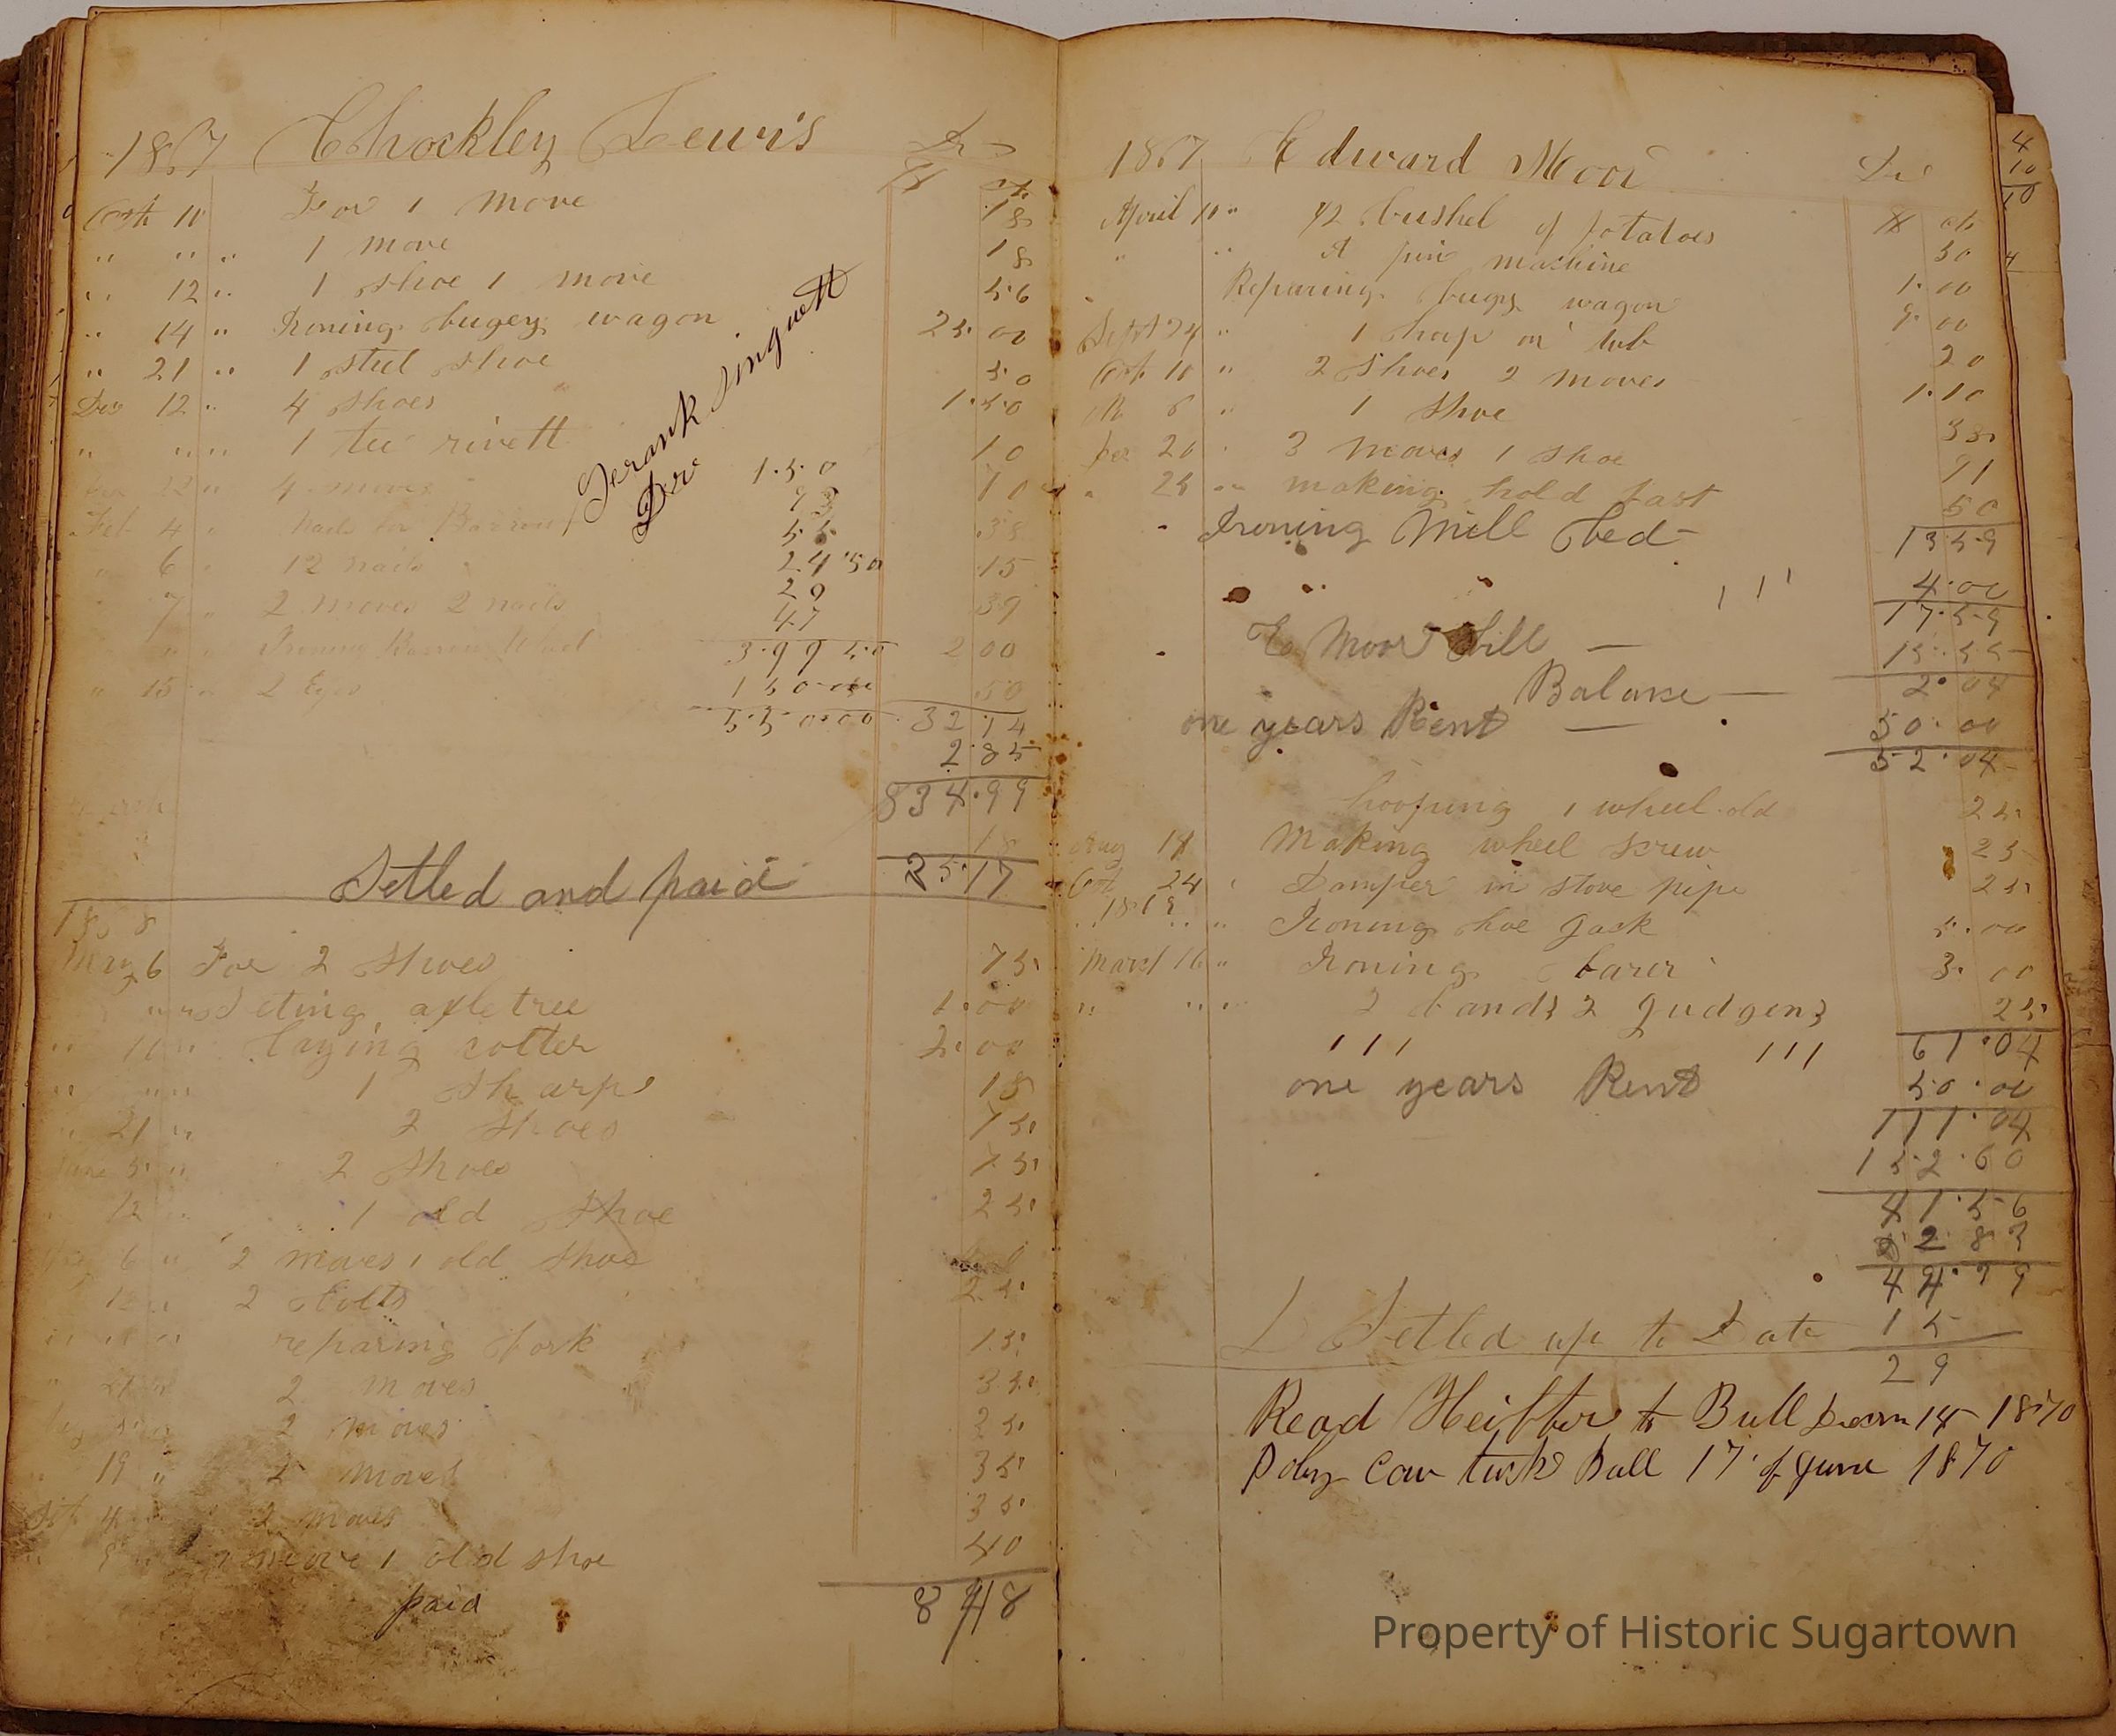 1867 Chockley Lewis Dr
$ cts
Oct 11 For 1 move 18
" " " 1 move 18
" 12 " 1 shoe 1 move 56
" 14 " Ironing bugey wagon 25.00
" 21 " 1 steel shoe 50
Dec 12 " 4 shoes 1.50
" " " 1 tee rivett 10
22 " 4 moves 70
Feb 4 " nails for Barrow .38
6 " 12 nails .15
" 7 " 2 moves 2 nails 39
" " " Ironing Barrow 2 00
" 15 " 2 Eyes .50
32.14
2.85
$34.99
18
35.17
Frank
Dr
1.50
73
55
24.50
29
47
399 50
150.00
550.00
Setled and paid
1868
May 6 For 2 Shoes 75
" " Seting axle tree 1.00
" 11 " laying colter 2.00
" " " 1 Sharp 18
" 21 " 2 Shoes 75
June 5 " 2 Shoes 75
12 " 1 old Shoe 25
6 " 2 moves 1 old Shoe
13 " 2 Bolts 25
" " " reparing fork 15
" 2 moves 35
2 moves 25
" 19 " 2 moves 35
Set 4 " 2 moves 35
" 9 " 1 move 1 old shoe 40
paid 8 48
1867 Edward Moor Dr
$ cts
April 11 " 1/2 bushel of potatoes 50
" " A machine 1.00
Reparing bugy wagon 9.00
Sept 24 " 1 hoop on tub 20
Oct 11 " 2 Shoes 2 moves 1.10
6 " 1 Shoe 38
Dec 20 " 3 moves 1 shoe 91
" 25 " making hold fast 50
Ironing Mill Bed 13.59
4.00
17.59
E Moor Bill — 15.55
Balance — 2.04
one years Rent — 50.00
52.04
hooping 1 wheel old 25
Aug 18 Making wheel screw 25
Oct 24 " Damper in stove pipe 25
1869 " Ironing hoe Jack 5.00
March 16 " Ironing barer 3.00
" " " 2 bands 2 gudgens 25
" " 61.04
one years Rent 50.00
111.04
152.60
41.56
2 83
44.39
Setled up to Date 15
29
Read Heiffer to Bull 14 1870
Poley Cow tuck Bull 17 of June 1870
4
10
Property of Historic Sugartown